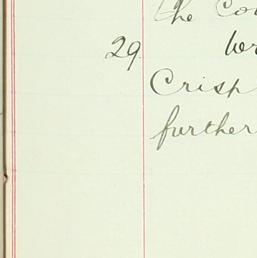 the Co
29 ber
Crisp
further